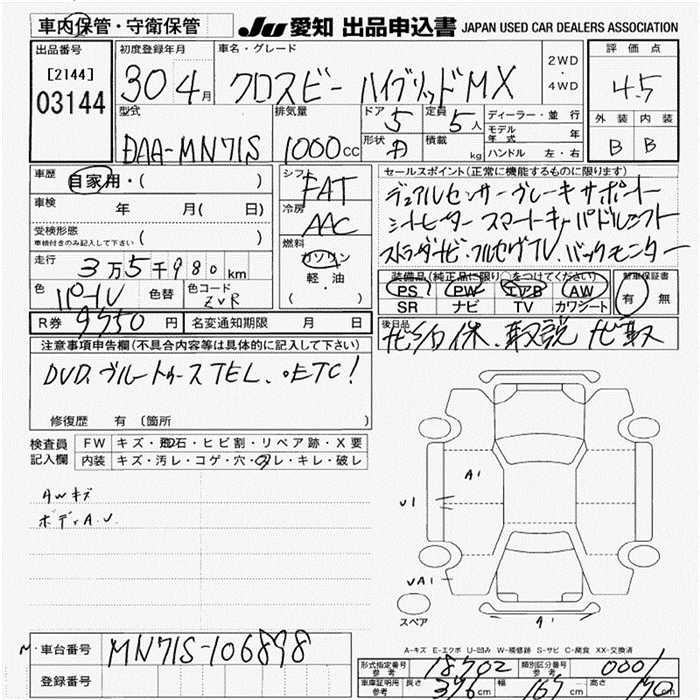 車内保管・守衛保管 JU 愛知 出品申込書 JAPAN USED CAR DEALERS ASSOCIATION
出品番号 初度登録年月 車名・グレード 2WD・4WD 評価点
[2144] 03144 30 4月 クロスビー ハイブリッドMX 4.5
型式 排気量 ドア 5 定員 5人 ディーラー・並行 外装 内装
モデル年式 年
DAA-MN71S 1000cc 形状 積載 kg ハンドル 左・右 B B
車歴 自家用・( ) シフト FAT セールスポイント(正常に機能するものに限ります)
車検 年 月( 日) 冷房 AAC デュアルセンサーブレーキサポート
受検形態 シートヒーター スマートキー パドルシフト
車検付きのみ記入して下さい 燃料 ガソリン 軽・油 ( ・ ) ストラダナビ・フルセグTV、バックモニター
走行 3万5千980km
装備品(純正品に限り○をつけてください) 新車保証書
色 パール 色替 色コード ZVR PS PW エアB AW 有 無
SR ナビ TV カワシート
R券 9550円 名変通知期限 月 日 後日品
注意事項申告欄(不具合内容等は具体的に記入して下さい) 保、取説 ナビ取
DVD、ブルートゥースTEL、ETC!
修復歴 有 〔箇所 〕
検査員記入欄 FW キズ・飛石・ヒビ割・リペア跡・X要
内装 キズ・汚レ・コゲ・穴・スレ・キレ・破レ
AWキズ
ボディA.U.
A1
U1
UA1
スペア
A1
A-キズ E-エクボ U-凹み W-補修跡 S-サビ C-腐食 XX-交換済
車台番号 MN71S-106898
登録番号
形式指定番号 参考 18702 類別区分番号 参考 0001
車庫証明用 参考 長さ 376cm 幅 167cm 高さ 170cm